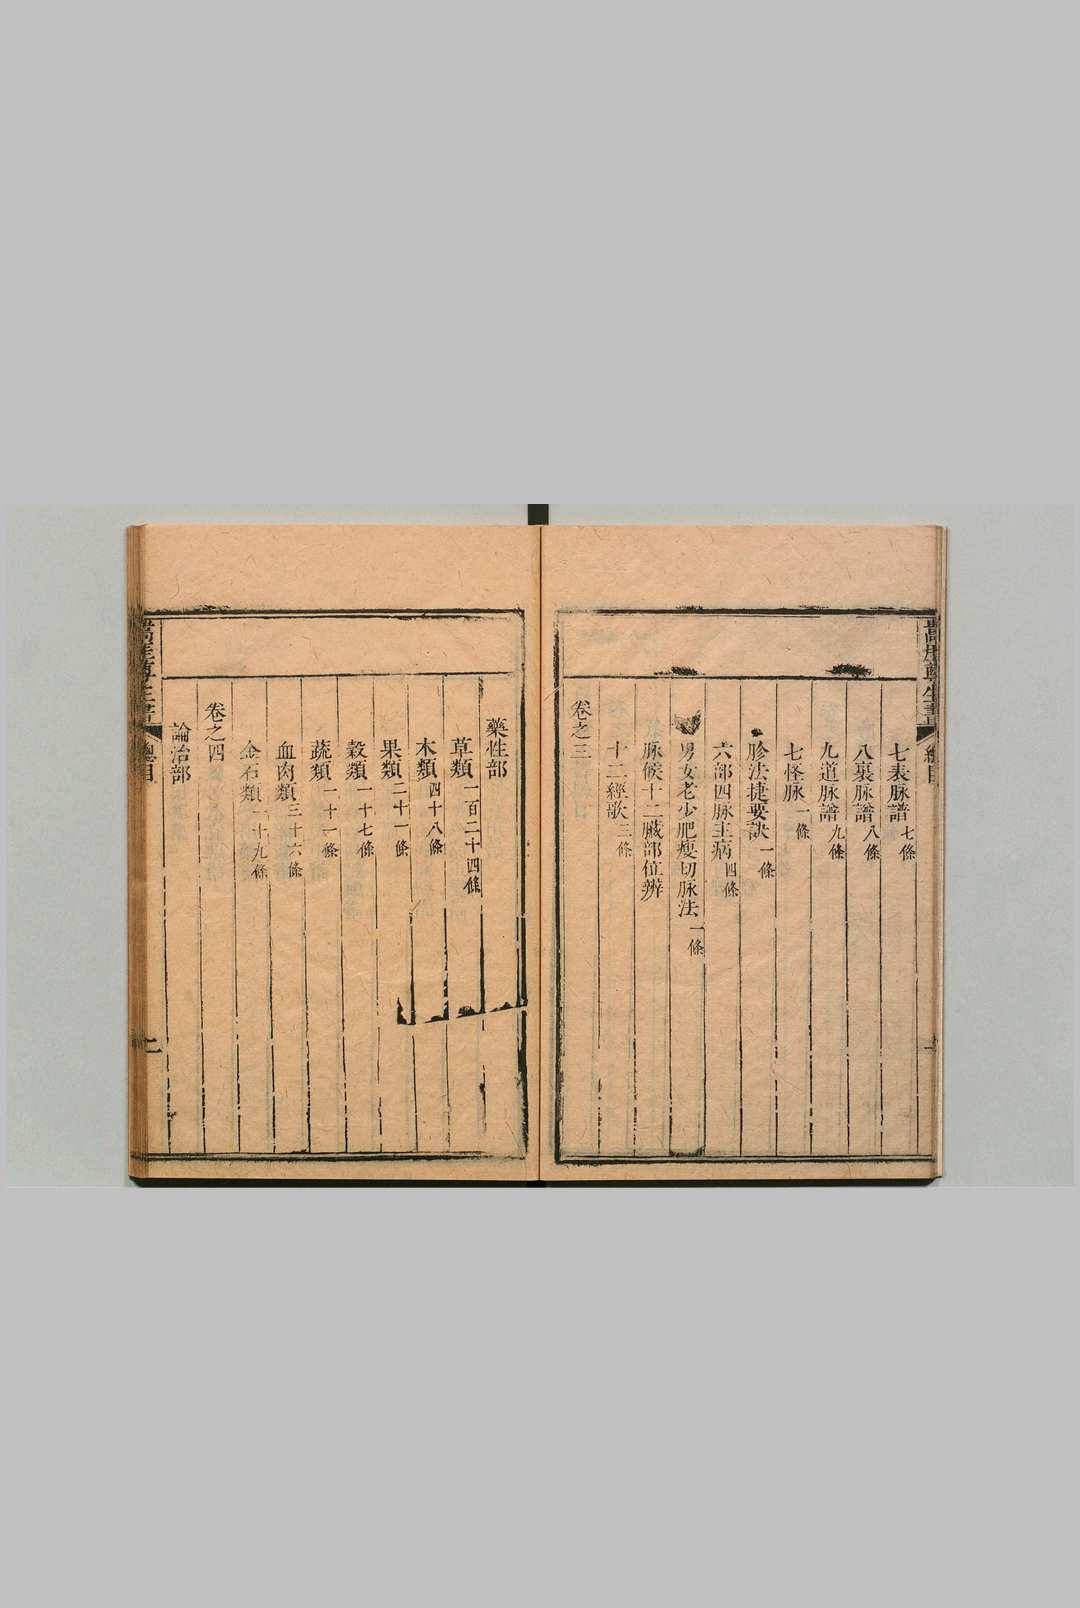 七表脉譜 七條
八裏脉譜 八條
九道脉譜 九條
七怪脉 一條
胗法捷要訣 一條
六部四脉主病 四條
男女老少肥瘦切脉法 一條
脉候十二臟部位辨
十二經歌 三條
卷之三
藥性部
草類 一百二十四條
木類 四十八條
果類 二十一條
穀類 一十七條
蔬類 一十一條
血肉類 三十六條
金石類 一十九條
卷之四
論治部
總目